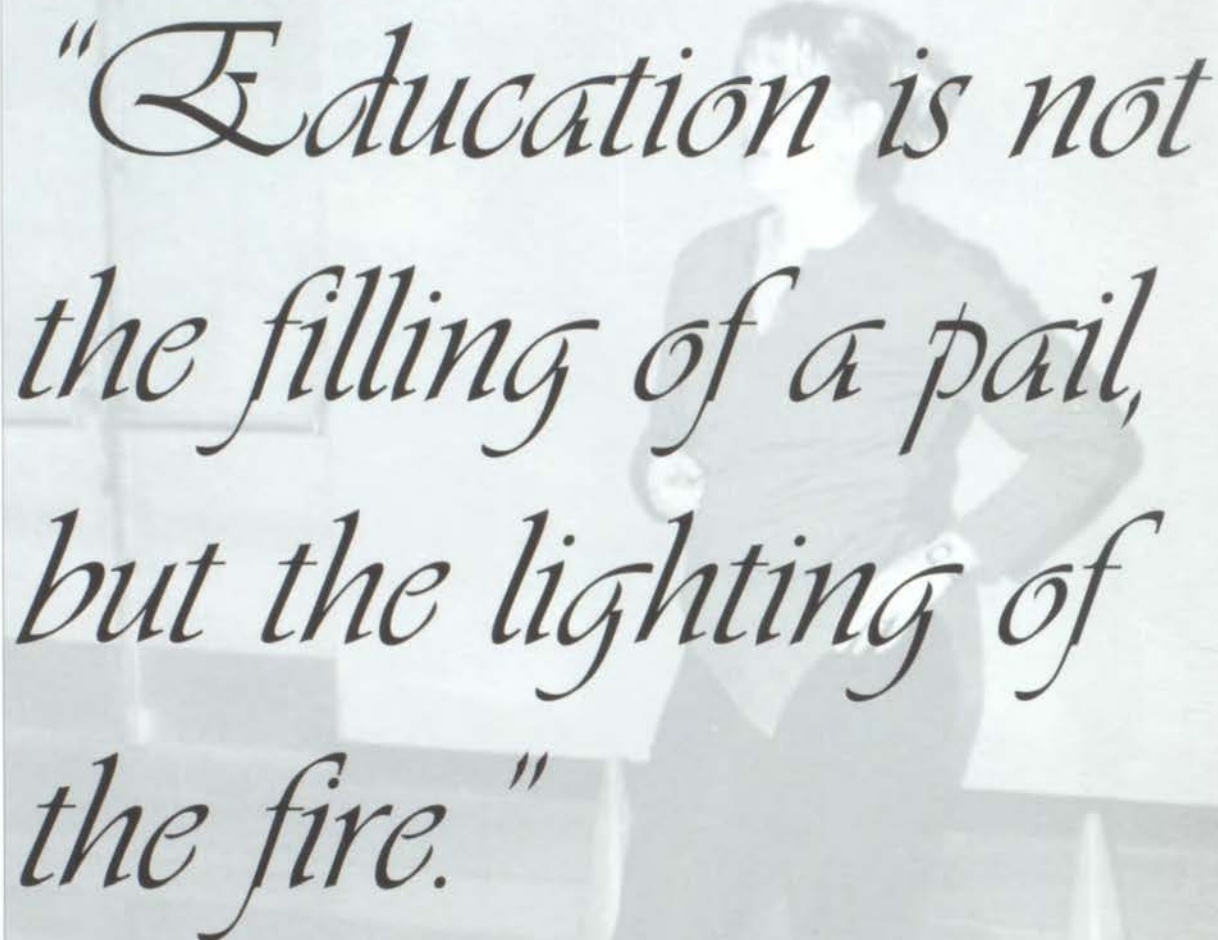 "Education is not
the filling of a pail,
but the lighting of
the fire."